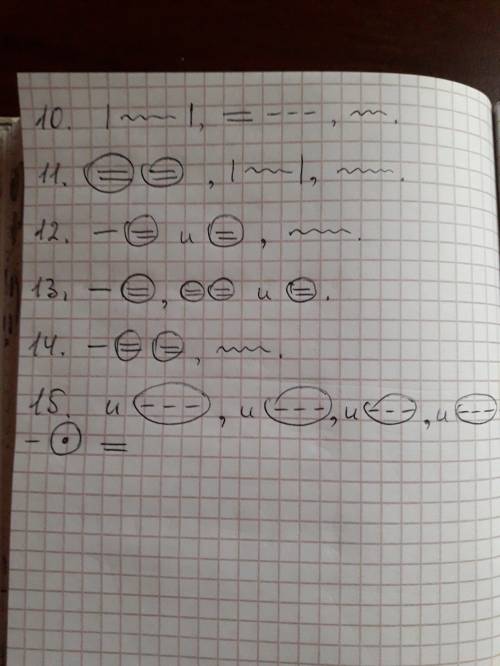 10. |~~~|, = ---, ~~.
11. (=) (=), |~~~|, ~~~.
12. – (=) и (=), ~~~~.
13. – (=), (=) (=) и (=).
14. – (=) (=), ~~~.
15. и (---), и (---), и (---), и (---)
– (•) =